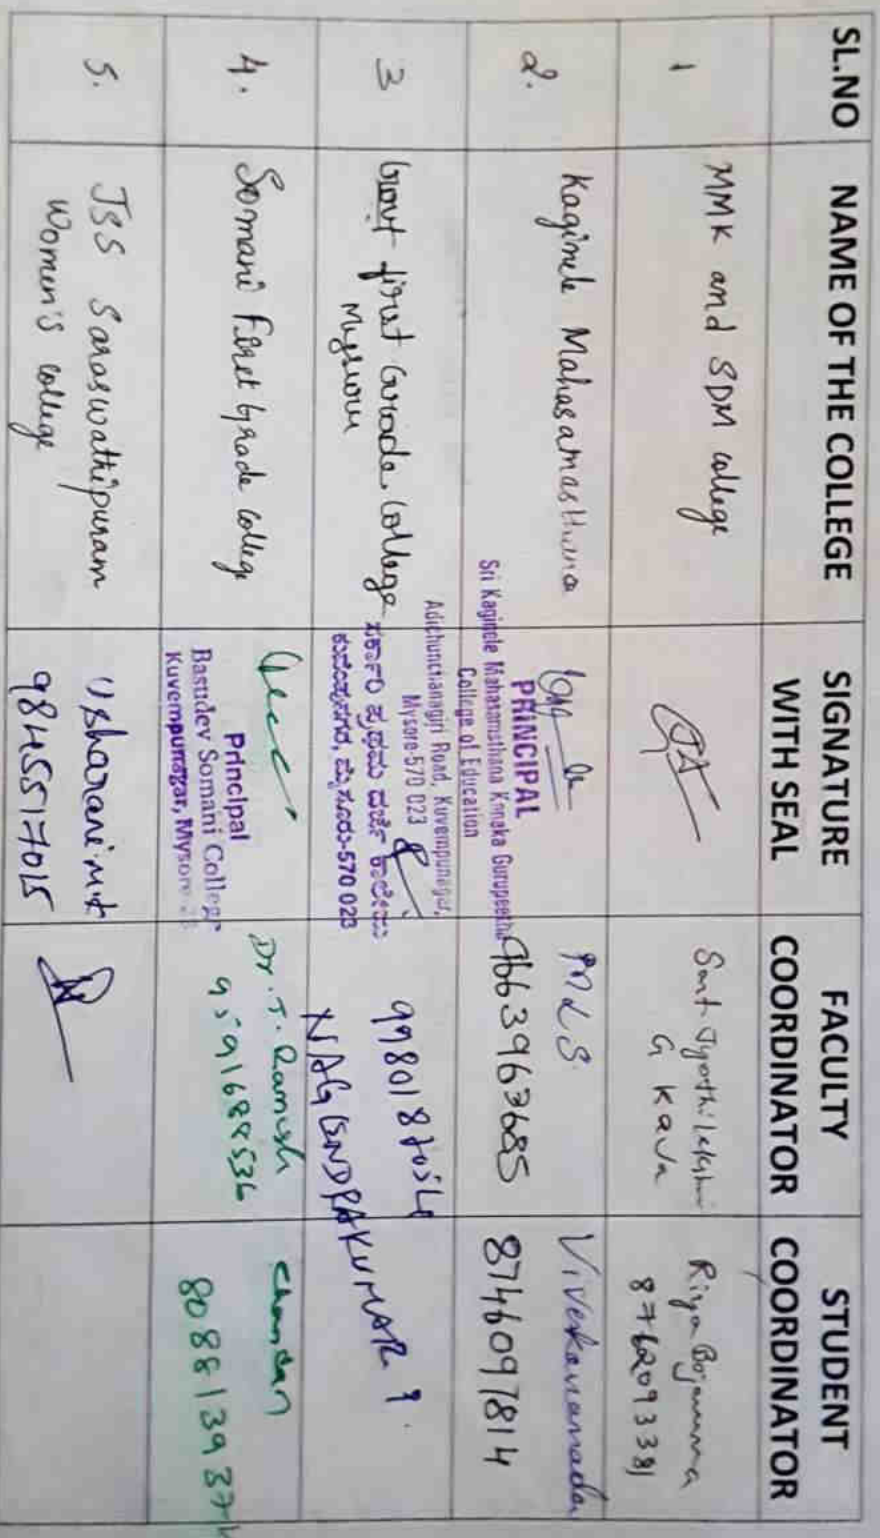 SL.NO
NAME OF THE COLLEGE
SIGNATURE
WITH SEAL
FACULTY
COORDINATOR
STUDENT
COORDINATOR
1
MMK and SDM college
Smt Jyothi Lakshmi
G Kava
Riya Bojamma
8762093381
2.
Kaginele Mahasamasthana
PRINCIPAL
Sri Kaginele Mahasamsthana Kanaka Gurupeetha
College of Education
Adichunchanagiri Road, Kuvempunagar,
Mysore-570 023
MLS
9663963685
Vivekananda
8746097814
3
Govt first Grade College
Mysuru
ಸರ್ಕಾರಿ ಪ್ರಥಮ ದರ್ಜೆ ಕಾಲೇಜು
ಕುವೆಂಪುನಗರ, ಮೈಸೂರು-570 023
NAGENDRAKUMAR
4.
Somani First Grade College
Principal
Basudev Somani College
Kuvempunagar, Mysore
Dr. T. Ramesh
9591688536
Chandan
5.
JSS Saraswathipuram
Women's college
Usharani
9845517015